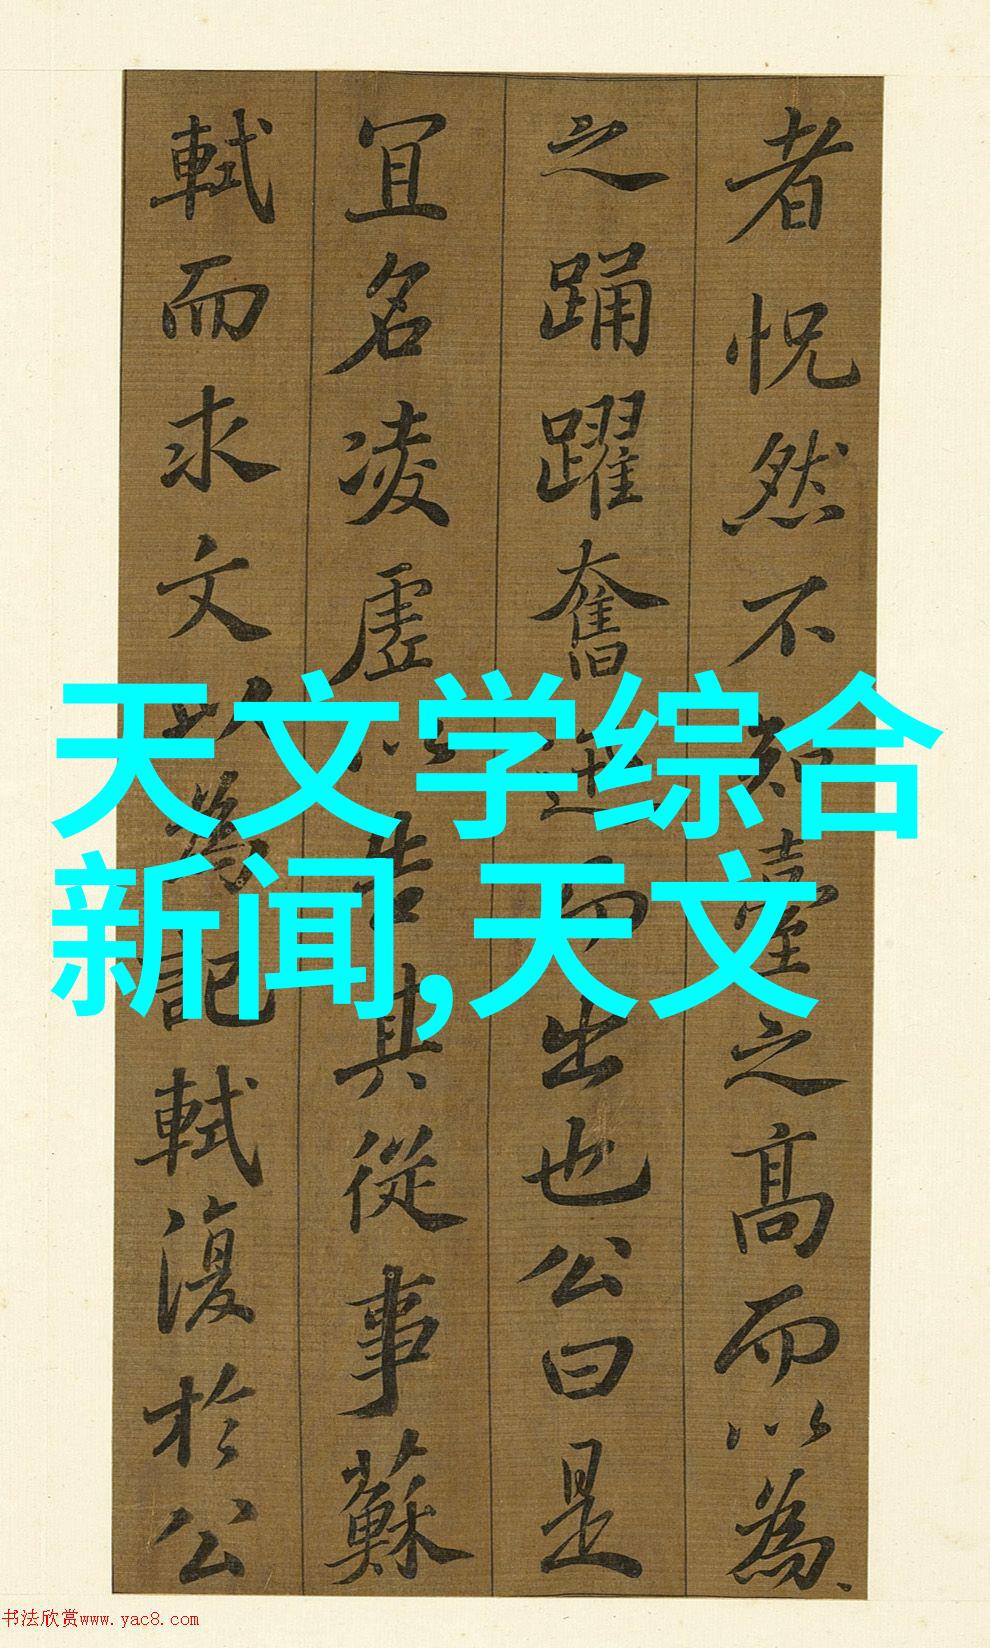 者怳然不知臺之高而以為
之踊躍奮迅而出也公曰是
宜名凌虛以告其從事蘇
軾而求文以為記軾復於公
天文学综合
新闻,天文
书法欣赏www.yac8.com